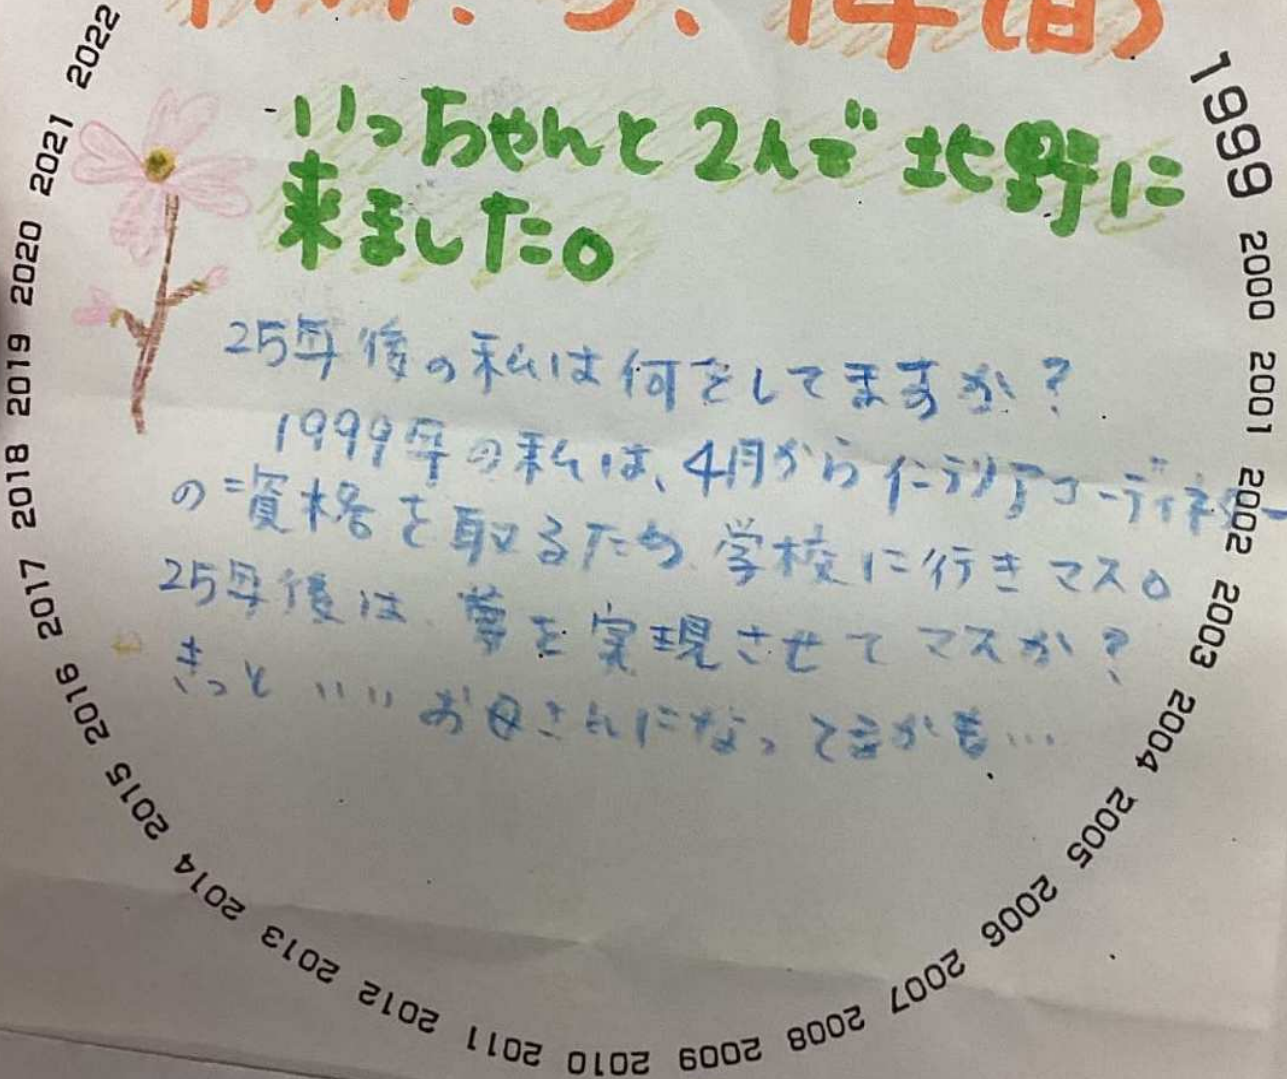 14(日)
いっちゃんと2人で北野に
来ました。
25年後の私は何をしてますか?
1999年の私は、4月からインテリアコーディネーター
の資格を取るため学校に行きマス。
25年後は、夢を実現させてマスか?
きっといいお母さんになってるかも…
1999 2000 2001 2002 2003 2004 2005 2006 2007 2008 2009 2010 2011 2012 2013 2014 2015 2016 2017 2018 2019 2020 2021 2022